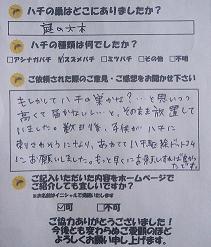 ハチの巣はどこにありましたか？
庭の大木
ハチの種類は何でしたか？
□アシナガバチ ☑スズメバチ □ミツバチ □その他 □不明
ご依頼された際のご意見・ご感想をお聞かせ下さい
もしかしてハチの巣かな？…と思いつつ
高くて届かないし…と、そのまま放置して
いました。数日後、子供がハチに
刺されそうになり、あわててハチ駆除ドットコム
にお願いしました。もっと早くにお願いすれば良かった
です。
ご記入いただいた内容をホームページで
ご紹介しても宜しいですか？
※お名前はイニシャルで掲載いたします
☑可 □不可
ご協力ありがとうございました！
今後とも変わらぬご愛顧のほど
よろしくお願い申し上げます。